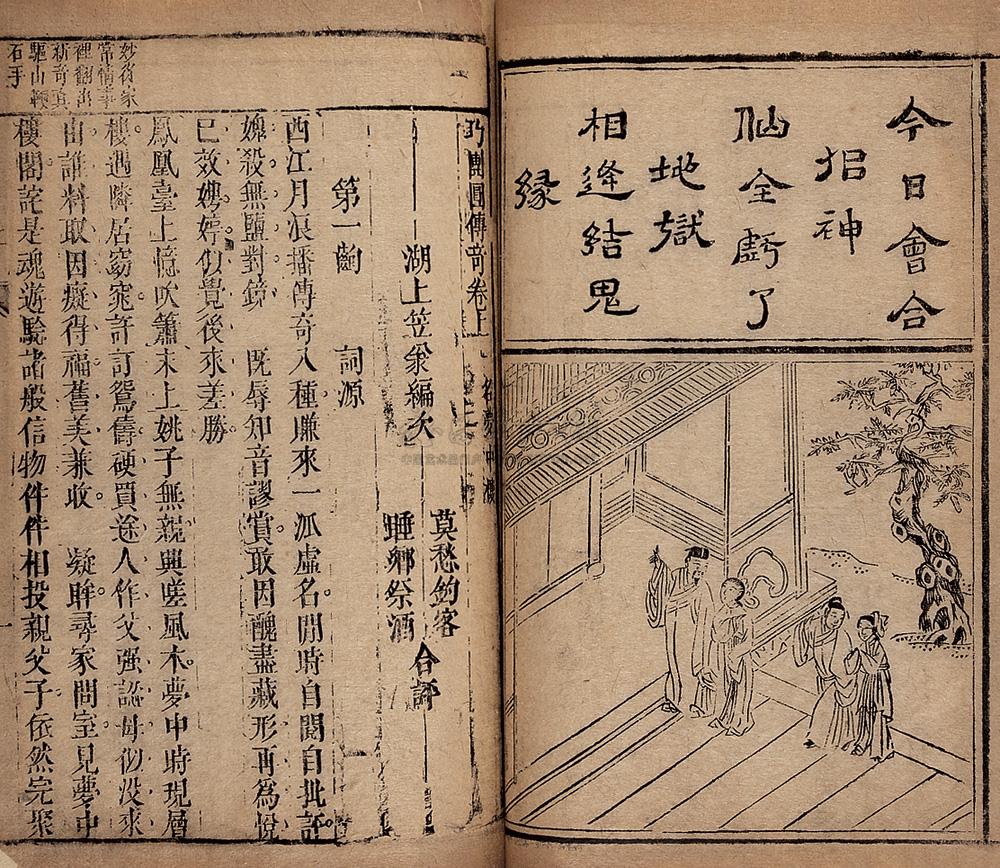 今日會合
招神
仙全虧了
地獄
相逢結鬼
緣
巧團圓傳奇卷上
湖上笠翁編次
莫愁釣客
睡鄉祭酒
合評
第一齣 詞源
西江月浪播傳奇八種賺來一派虛名。閒時自閱自批評
媿殺無鹽對鏡 既辱知音謬賞。敢因醜盡藏形再為悅
已效娉婷似覺後來差勝。
鳳凰臺上憶吹簫末上姚子無親興嗟風木。夢中時現層
樓。遇隣居窈窕許訂鴛儔。硬買途人作父强認母似没來
由。誰料取因癡得福。舊美兼收。 凝眸。尋家問室見夢中
樓閣。詫是魂遊。驗諸般信物件件相投。親父子依然完聚
妙從家
常情事
裡翻出
新奇真
驅山鞭
石手